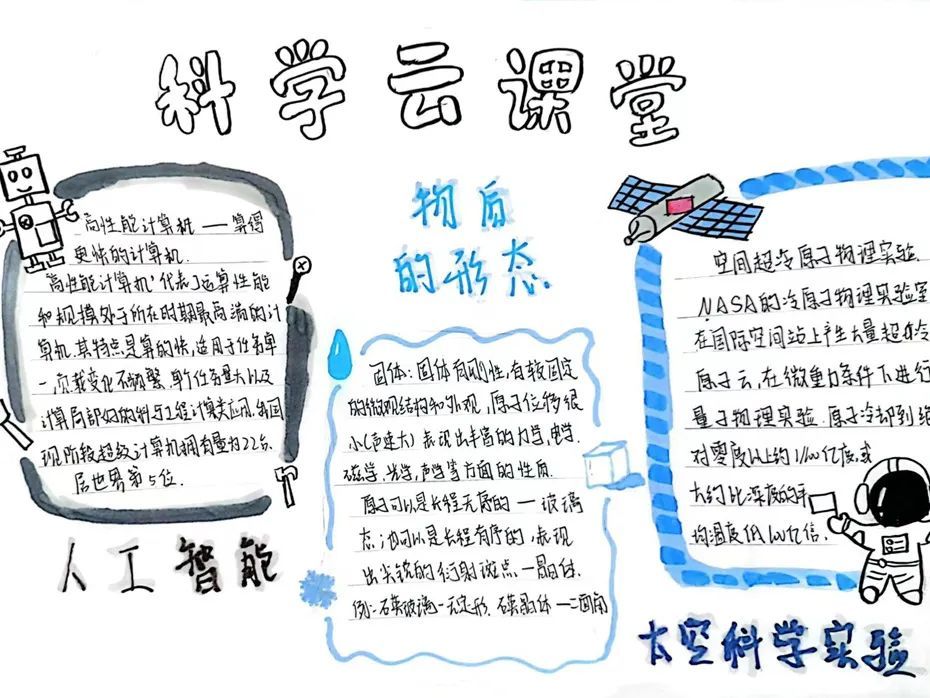 科学云课堂
高性能计算机——算得
更快的计算机.
高性能计算机"代表了运算性能
和规模处于所在时期最高端的计
算机,其特点是算的快,适用于任务单
一,负载变化不频繁,单个任务量大以及
计算局部好的科与工程计算类应用,我国
现阶段超级计算机拥有量为22台.
居世界第5位.
人工智能
物质
的形态
固体:固体有刚性,有较固定
的微观结构和外观,原子位移很
小(声速大)表现出丰富的力学,电学.
磁学,光学,声学等方面的性质.
原子可以是长程无序的—玻璃
态,也可以是长程有序的,表现
出尖锐的衍射斑点—晶体.
例:石英玻璃—无定形.石英晶体—
空间超冷原子物理实验
NASA的冷原子物理实验室
在国际空间站上产生大量超冷
原子云,在微重力条件下进行
量子物理实验.原子冷却到绝
对零度以上约1/100亿度,或
大约比深度的平
均温度低100亿倍.
太空科学实验